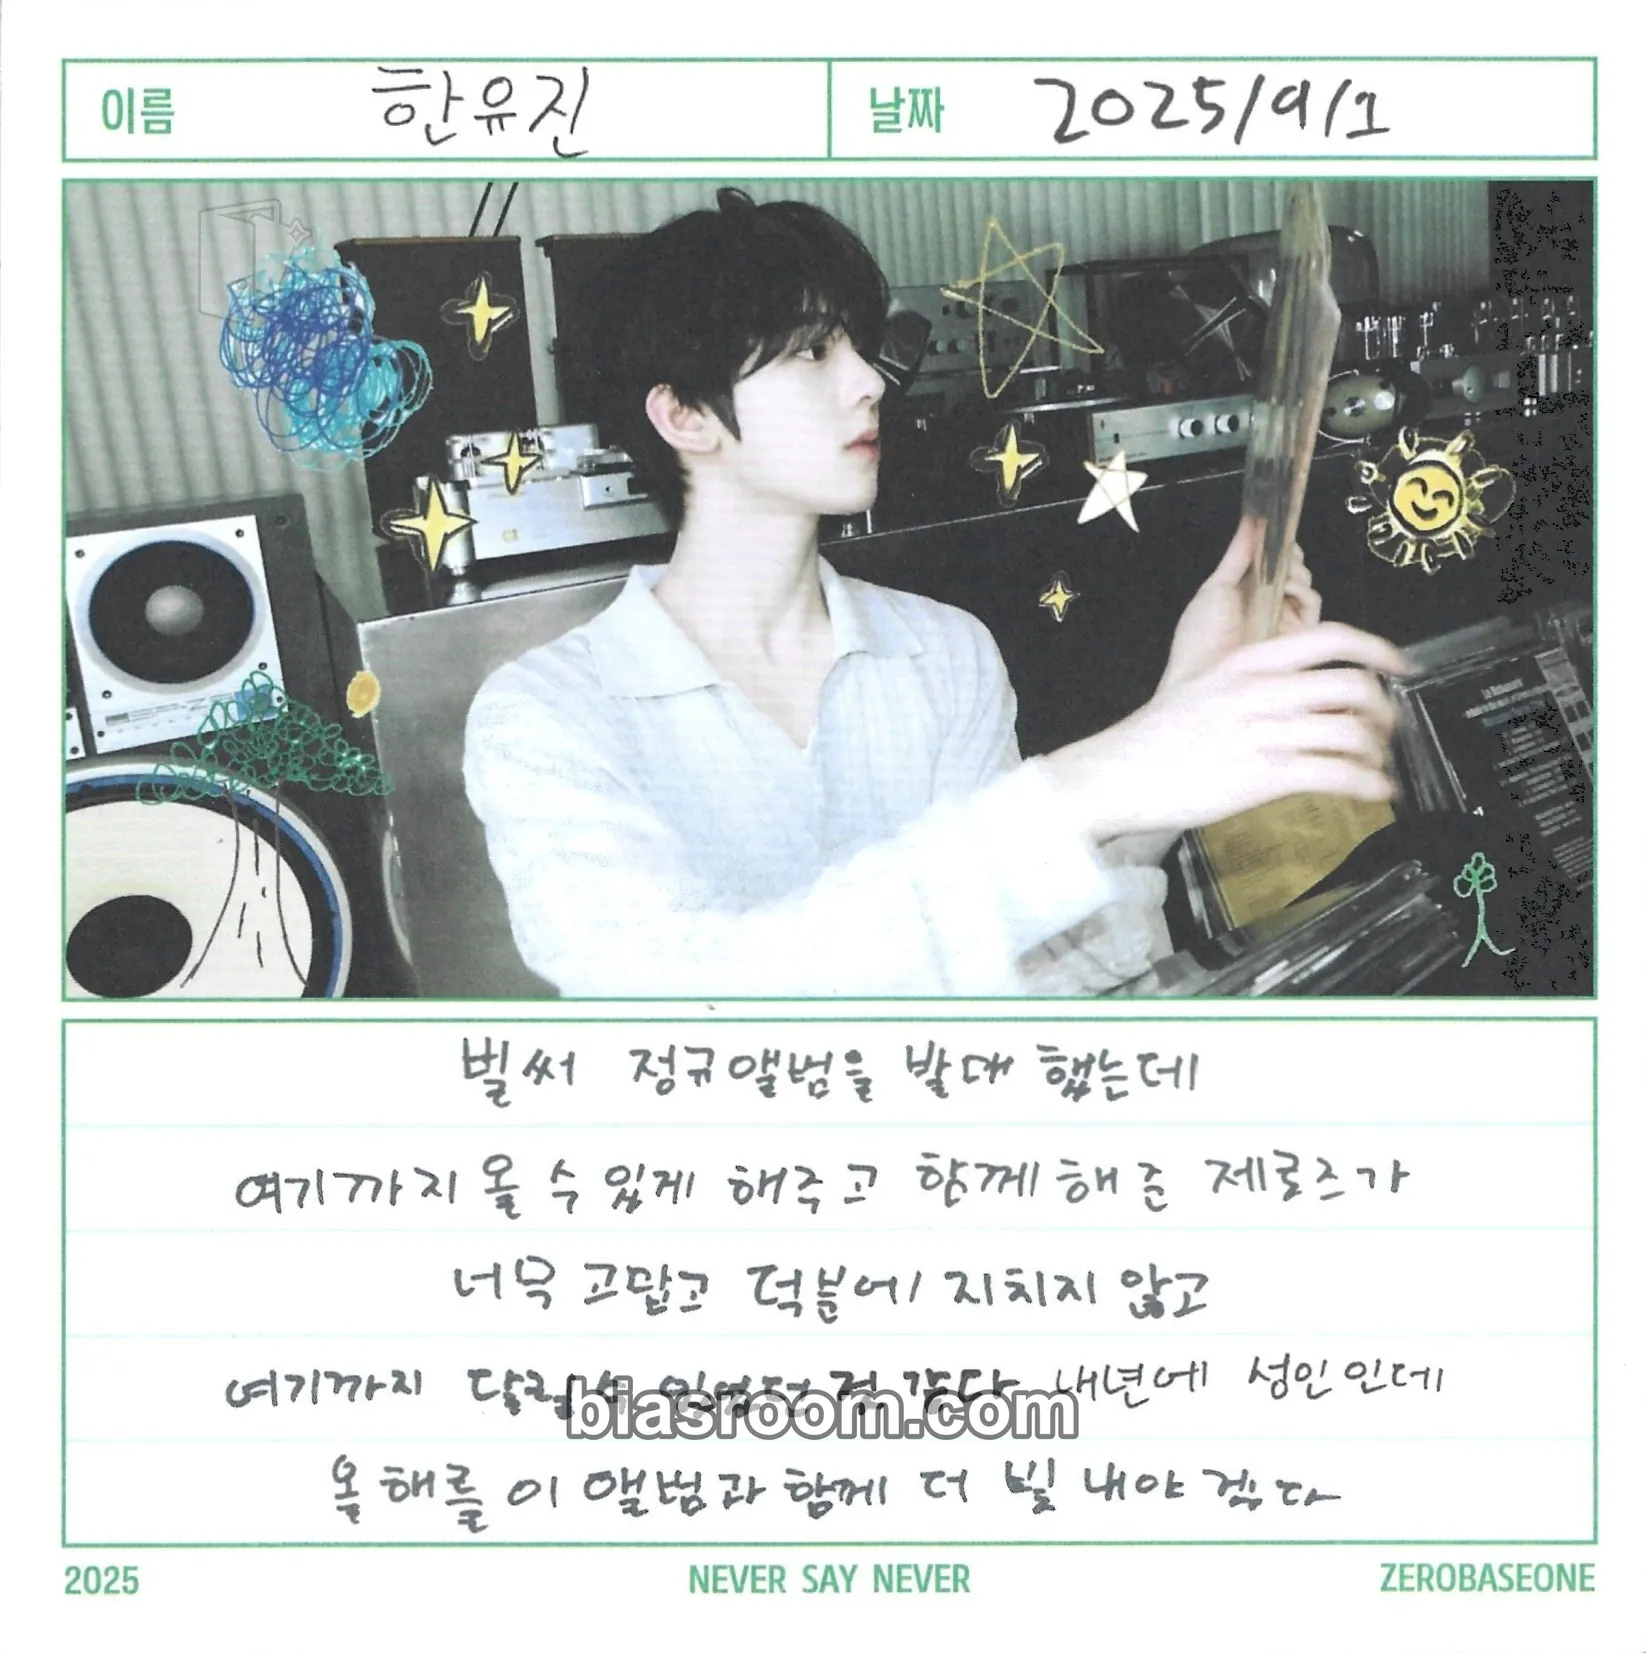 이름 한유진 날짜 2025/9/1
벌써 정규앨범을 발매 했는데
여기까지 올 수 있게 해주고 함께해 준 제로즈가
너무 고맙고 덕분에 지치지 않고
여기까지 달릴 수 있었던 것 같다 내년에 성인인데
올해를 이 앨범과 함께 더 빛 내야 겠다
biasroom.com
2025 NEVER SAY NEVER ZEROBASEONE